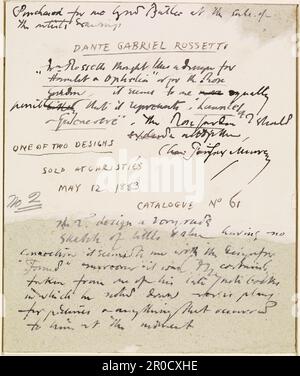 Purchased for me by Butler at the sale of
the artist's drawings
DANTE GABRIEL ROSSETTI
Rossetti thought this a design for
Hamlet & Ophelia or for the Rose
garden, it seems to me equally
that it represents Launcelot
& Guinevere, the Rose garden I should
exclude altogether
Chas Fairfax Murray
ONE OF TWO DESIGNS
SOLD AT CHRISTIES
MAY 12 1883
No 2
CATALOGUE No 61
No 2. design a very rude
sketch of little value having no
connection it seems to me with the
Found it was certainly
taken from one of his late note books
in which he noted down
for pictures or anything that occurred
to him at the moment
alamy
Image ID: 2R0CXHE
www.alamy.com